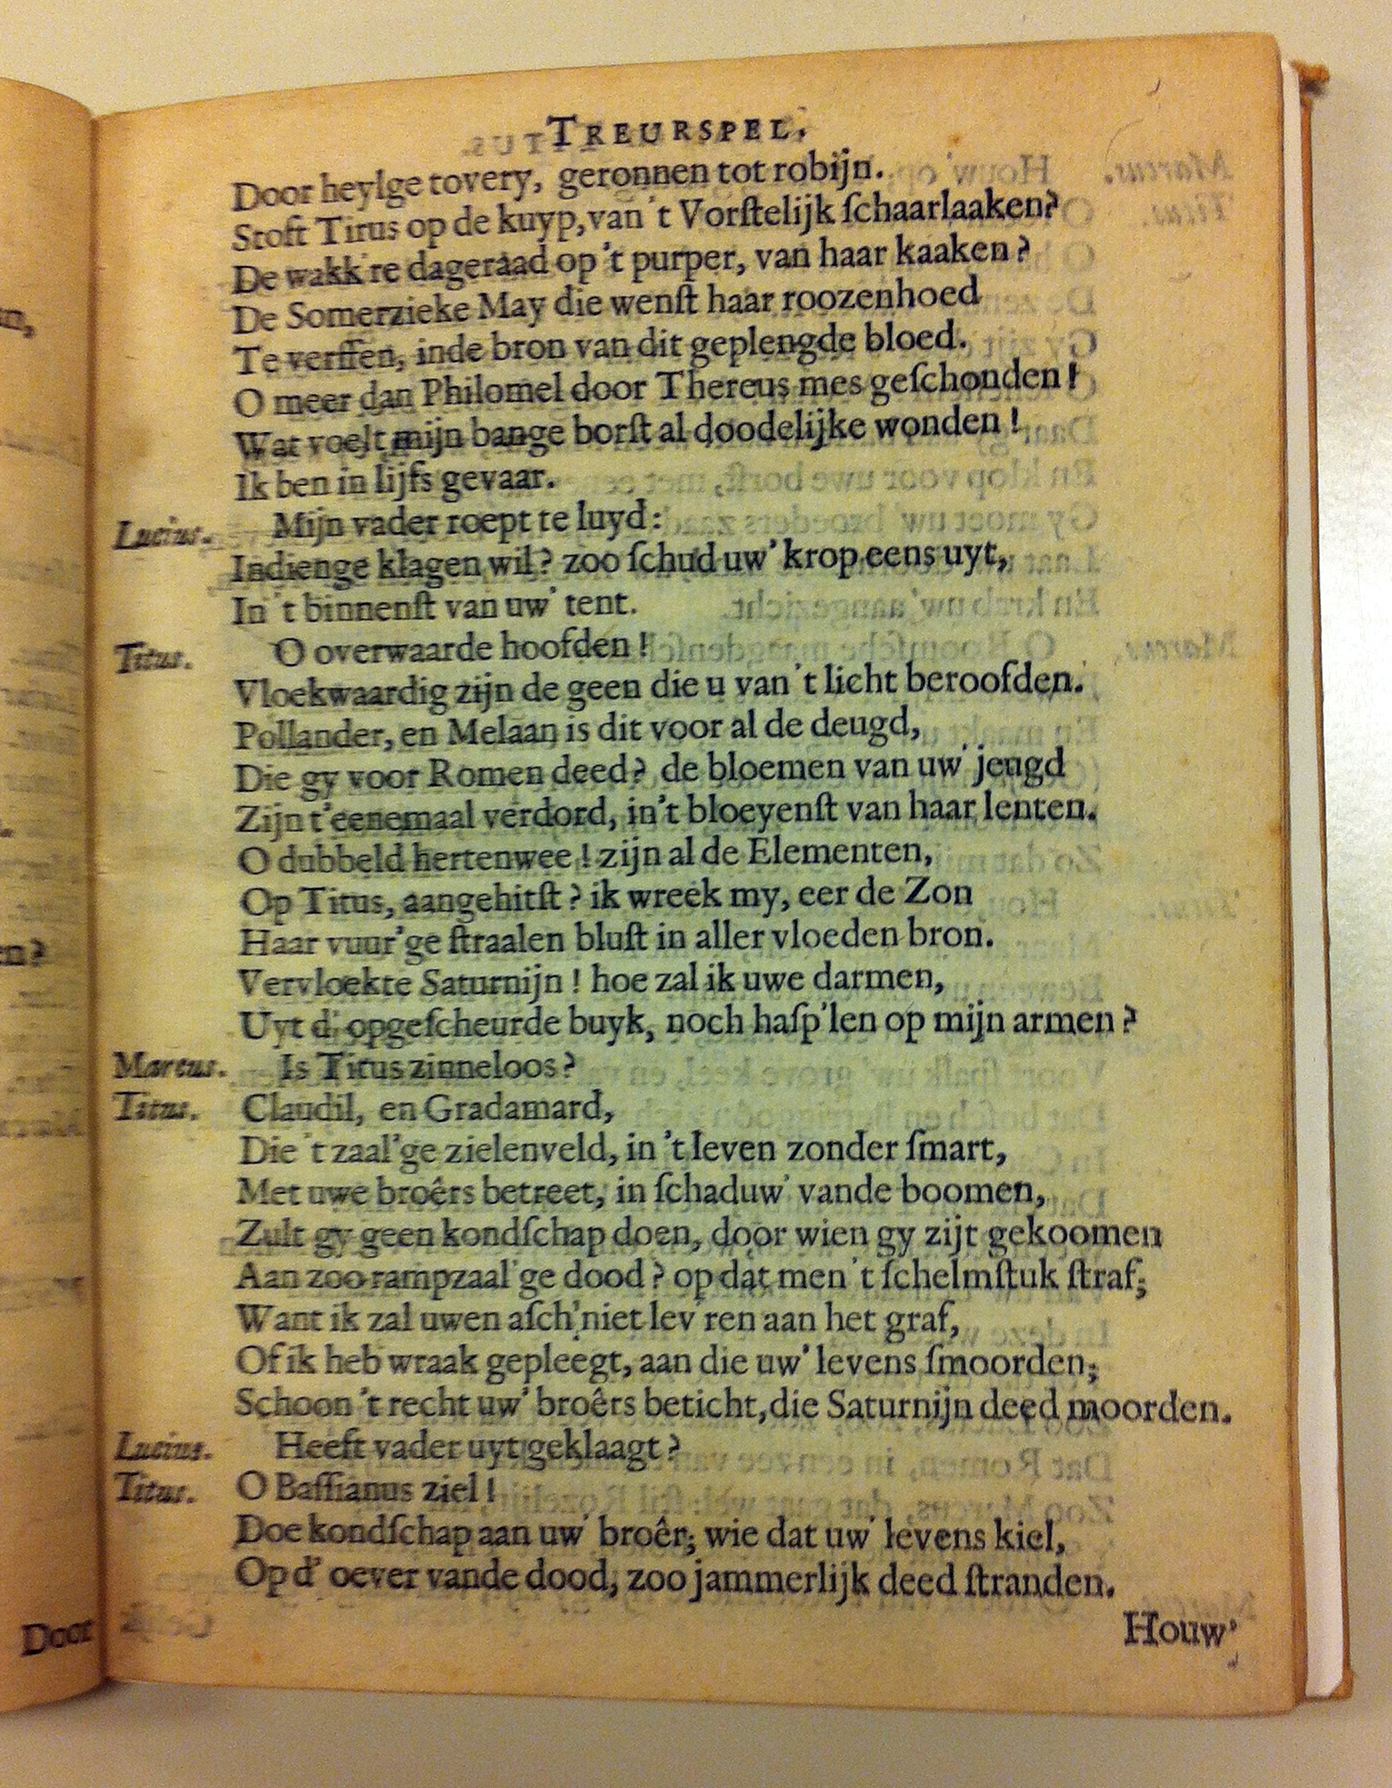 TREURSPEL.
Door heylge tovery, geronnen tot robijn.
Stoft Titus op de kuyp, van 't Vorſtelijk ſchaarlaaken?
De wakk're dageraad op 't purper, van haar kaaken?
De Somerzieke May die wenſt haar roozenhoed
Te verffen, inde bron van dit geplengde bloed.
O meer dan Philomel door Thereus mes geſchonden!
Wat voelt mijn bange borſt al doodelijke wonden!
Ik ben in lijfs gevaar.
Lucius. Mijn vader roept te luyd:
Indienge klagen wil? zoo ſchud uw' krop eens uyt,
In 't binnenſt van uw' tent.
Titus. O overwaarde hoofden!
Vloekwaardig zijn de geen die u van 't licht beroofden.
Pollander, en Melaan is dit voor al de deugd,
Die gy voor Romen deed? de bloemen van uw' jeugd
Zijn t'eenemaal verdord, in't bloeyenſt van haar lenten.
O dubbeld hertenwee! zijn al de Elementen,
Op Titus, aangehitſt? ik wreek my, eer de Zon
Haar vuur'ge ſtraalen bluſt in aller vloeden bron.
Vervloekte Saturnijn! hoe zal ik uwe darmen,
Uyt d' opgeſcheurde buyk, noch haſp'len op mijn armen?
Marcus. Is Titus zinneloos?
Titus. Claudil, en Gradamard,
Die 't zaal'ge zielenveld, in 't leven zonder ſmart,
Met uwe broêrs betreet, in ſchaduw' vande boomen,
Zult gy geen kondſchap doen, door wien gy zijt gekoomen
Aan zoo rampzaal'ge dood? op dat men 't ſchelmſtuk ſtraf;
Want ik zal uwen aſch' niet lev'ren aan het graf,
Of ik heb wraak gepleegt, aan die uw' levens ſmoorden;
Schoon 't recht uw' broêrs beticht, die Saturnijn deed moorden.
Lucius. Heeft vader uyt geklaagt?
Titus. O Baſſianus ziel!
Doe kondſchap aan uw' broêr; wie dat uw' levens kiel,
Op d' oever vande dood, zoo jammerlijk deed ſtranden.
Houw'
Door